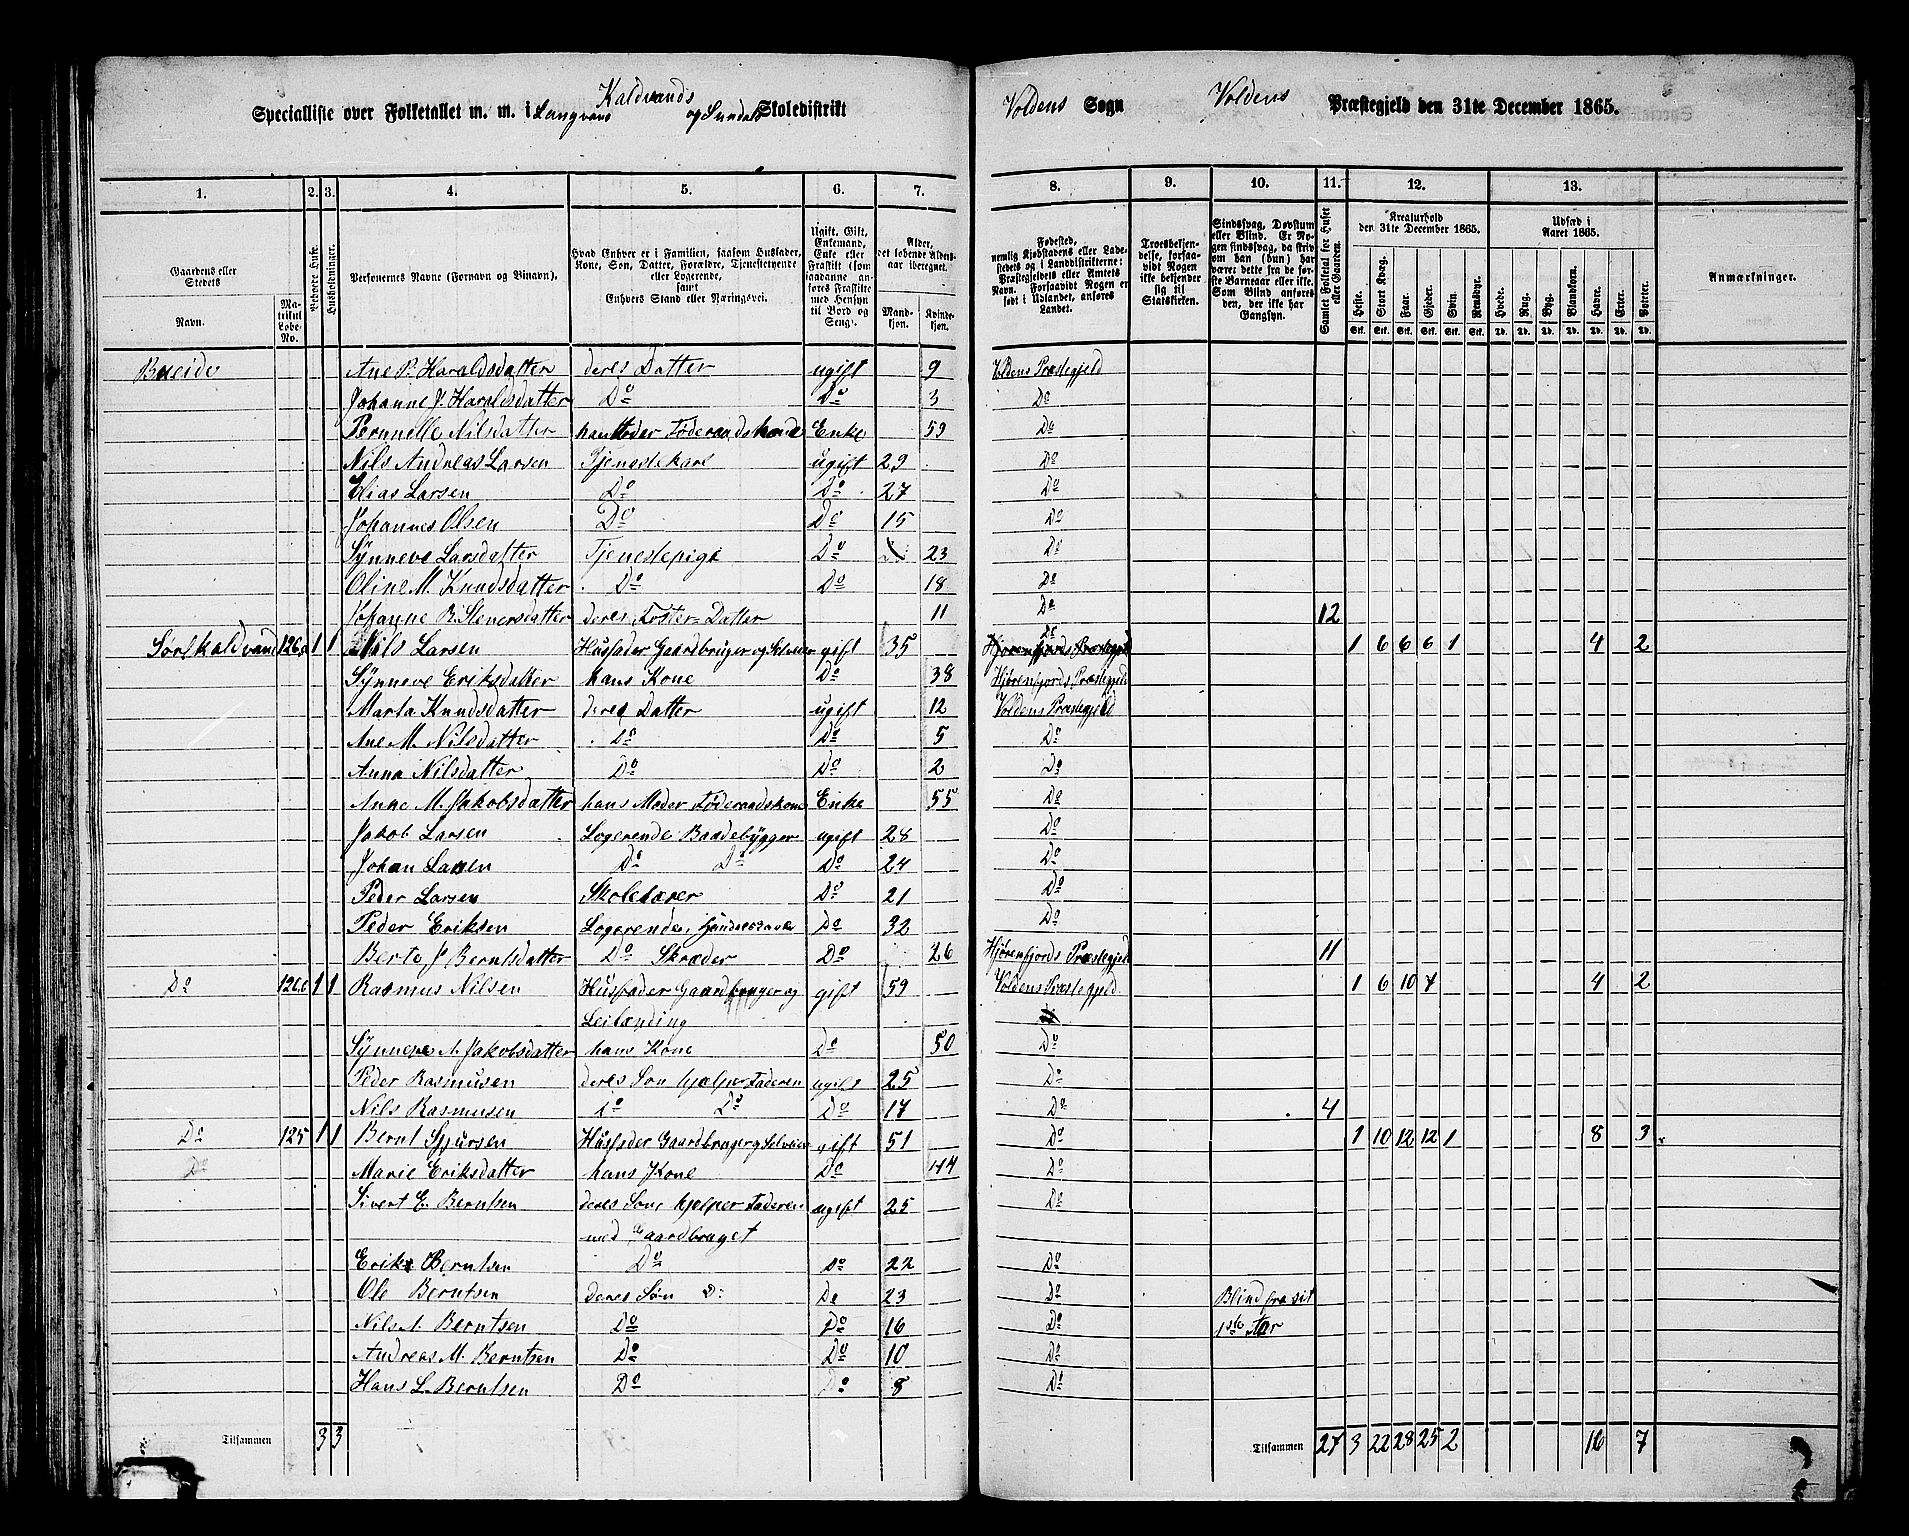 Specialliste over Folketallet m. m. i Langvans Kaldvands og Sundals Skoledistrikt Voldens Sogn Voldens Præstegjeld den 31te December 1865.
1. 2. 3. 4. 5. 6. 7. 8. 9. 10. 11. 12. 13.
Gaardens eller Stedets Navn. Matrikul Løbe-No. Beboede Huse. Husholdninger. Personernes Navne (Fornavn og Binavn). Hvad Enhver er i Familien, saasom Husfader, Kone, Son, Datter, Forældre, Tjenestetyende eller Logerende, samt Enhvers Stand eller Næringsvei. Ugift, Gift, Enkemand, Enke eller Fraskilt (som saadanne anføres Fraskilte med Hensyn til Bord og Seng). Alder, det løbende Aldersaar iberegnet. Mandkjøn. Kvindekjøn. Fødested, nemlig Kjøbstadens eller Ladestedets og i Landdistrikterne: Præstegjeldets eller Amtets Navn. Forsaavidt Nogen er født i Udlandet, anføres Landet. Troesbekjendelse, forsaavidt Nogen ikke bekjender sig til Statskirken. Sindssvag, Døvstum eller Blind. Er Nogen sindssvag, da skrives om han (hun) har været dette fra de første Barneaar eller ikke. Som Blind anføres den, der ikke har Gangsyn. Samlet Folketal for Huset eller Gaarden. Kreaturhold den 31te December 1865. Heste. Stort Kvæg. Faar. Gjeder. Svin. Rensdyr. Udsæd i Aaret 1865. Hvede. Rug. Byg. Blandkorn. Havre. Erter. Poteter. Anmærkninger.
Bueide Ane P. Haraldsdatter deres Datter ugift 9 Voldens Præstegjeld
Johanne J. Haraldsdatter Do Do 3 Do
Pernnelle Nilsdatter hans Moder Føderaadskone Enke 59 Do
Nils Andreas Larsen Tjenestekarl ugift 29 Do
Elias Larsen Do Do 27 Do
Johannes Olsen Do Do 15 Do
Synneve Larsdatter Tjenestepige Do 23 Do
Oline M. Knudsdatter Do Do 18 Do
Johanne B. Stenersdatter deres Foster-Datter 11 Do 12
Sørkaldvand 126a 1 1 Nils Larsen Husfader Gaardbruger og Selveier gift 35 Do 1 6 6 6 1 4 2
Synneve Eriksdatter hans Kone Do 38 Hjørenfjords Præstegjeld
Marta Knudsdatter deres Datter ugift 12 Voldens Præstegjeld
Ane M. Nilsdatter Do Do 5 Do
Anna Nilsdatter Do Do 2 Do
Anne M. Jakobsdatter hans Moder Føderaadskone Enke 55 Do
Jakob Larsen Logerende Baadebygger ugift 28 Do
Johan Larsen Do Do Do 24 Do
Peder Larsen Skolelærer Do 21 Do
Peder Eriksen Logerende, Do 32 Do
Berte J Berntsdatter Do Skræder Do 26 Hjørenfjords Præstegjeld 11
Do 126b 1 1 Rasmus Nilsen Husfader Gaardbruger og gift 59 Voldens Præstegjeld 1 6 10 7 4 2
Leilænding
Synneve A. Jakobsdatter hans Kone Do 50 Do
Peder Rasmusen deres Son hjelper Faderen ugift 25 Do
Nils Rasmusen Do Do Do 17 Do 4
Do 125 1 1 Bernt Sjursen Husfader Gaardbruger og Selveier gift 51 Do 1 10 12 12 1 8 3
Do Marie Eriksdatter hans Kone Do 44 Do
Sivert E. Berntsen deres Son hjelper Faderen ugift 25 Do
med Gaardbruget
Erik Berntsen Do Do 22 Do
Ole Berntsen deres Søn D: Do 23 Do Blind fra sit
Nils A. Berntsen Do Do 16 Do 1ste Aar
Andreas M. Berntsen Do Do 10 Do
Hans L. Berntsen Do Do 8 Do
Tilsammen 3 3 Tilsammen 27 3 22 28 25 2 16 7